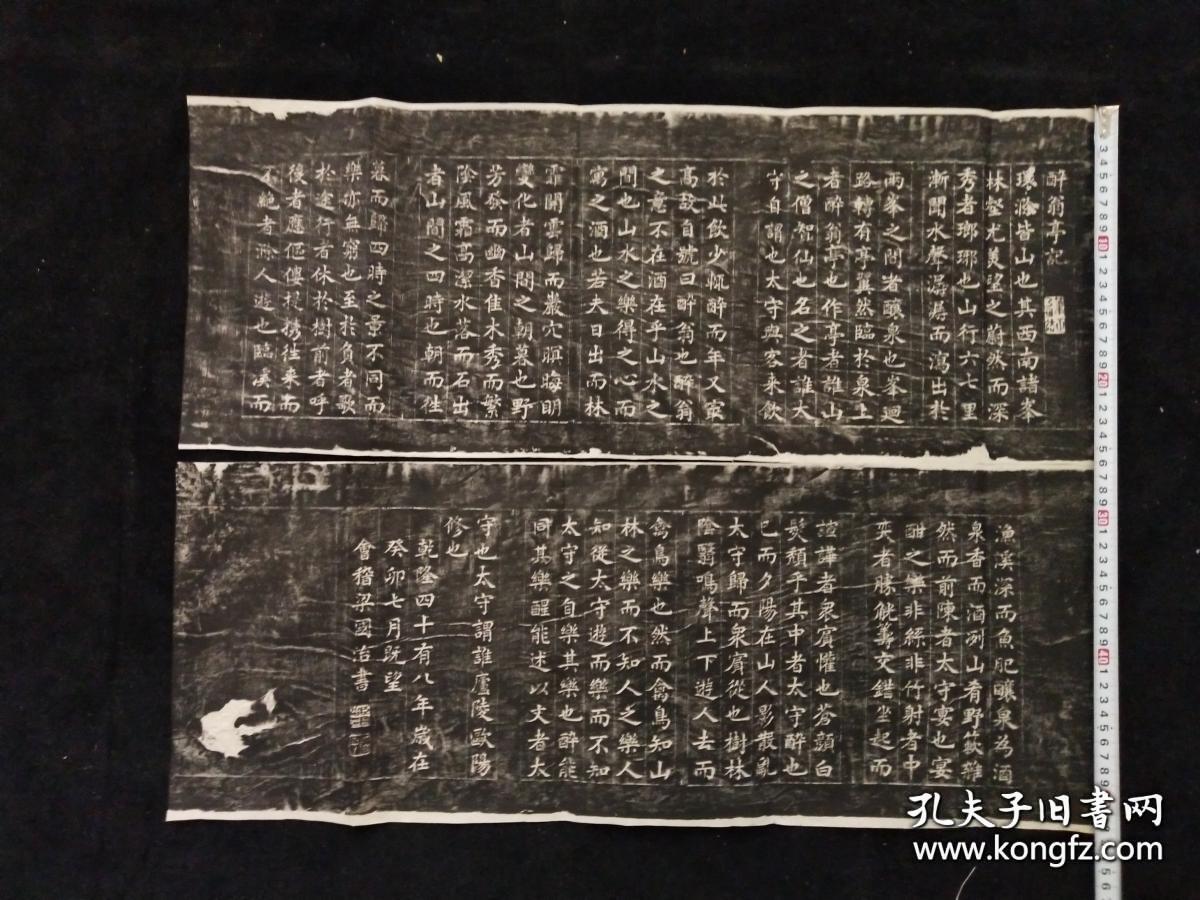 醉翁亭記
環滁皆山也其西南諸峯
林壑尤美望之蔚然而深
秀者瑯琊也山行六七里
漸聞水聲潺湲而瀉出於
兩峯之間者釀泉也峯迴
路轉有亭翼然臨於泉上
者醉翁亭也作亭者誰山
之僧智仙也名之者誰太
守自謂也太守與客来飲
於此飲少輒醉而年又寂
高故自號曰醉翁也醉翁
之意不在酒在乎山水之
間也山水之樂得之心而
寓之酒也若夫日出而林
霏開雲歸而巖穴暝晦明
變化者山間之朝暮也野
芳發而幽香佳木秀而繁
陰風霜高潔水落而石出
者山間之四時也朝而往
暮而歸四時之景不同而
樂亦無窮也至於負者歌
於途行者休於樹前者呼
後者應傴僂提携往来而
不絕者滁人遊也臨溪而
漁溪深而魚肥釀泉為酒
泉香而酒冽山肴野蔌雜
然而前陳者太守宴也宴
酣之樂非絲非竹射者中
奕者勝觥籌交錯坐起而
諠譁者衆賓懽也蒼顏白
髮頹乎其中者太守醉也
已而夕陽在山人影散亂
太守歸而衆賓從也樹林
陰翳鳴聲上下遊人去而
禽鳥樂也然而禽鳥知山
林之樂而不知人之樂人
知從太守遊而樂而不知
太守之自樂其樂也醉能
同其樂醒能述以文者太
守也太守謂誰廬陵歐陽
修也
乾隆四十有八年歲在
癸卯七月既望
會稽梁國治書
孔夫子旧书网
www.kongfz.com